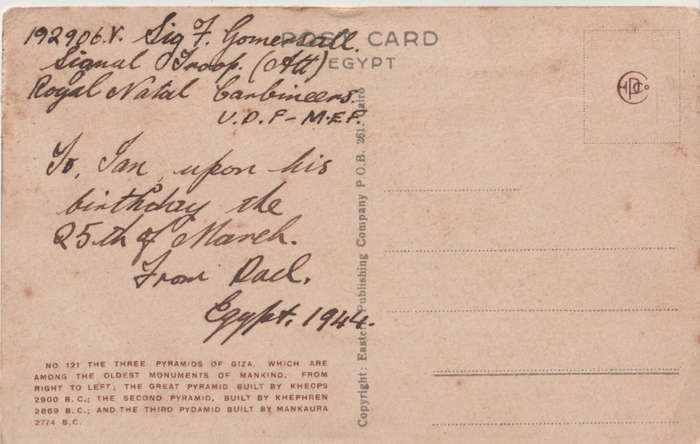 192906.V. Sig F. Gomersall.
Signal Troop. (Att)
Royal Natal Carbineers.
U.D.F - M.E.F.
POST CARD
EGYPT
To, Ian, upon his
birthday the
25th of March.
From Dad.
Egypt. 1944.
NO 121 THE THREE PYRAMIDS OF GIZA, WHICH ARE
AMONG THE OLDEST MONUMENTS OF MANKIND. FROM
RIGHT TO LEFT; THE GREAT PYRAMID BUILT BY KHEOPS
2900 B.C.; THE SECOND PYRAMID, BUILT BY KHEPHREN
2869 B.C.; AND THE THIRD PYDAMID BUILT BY MANKAURA
2774 B.C.
Copyright: Eastern Publishing Company P.O.B. 261. Cairo